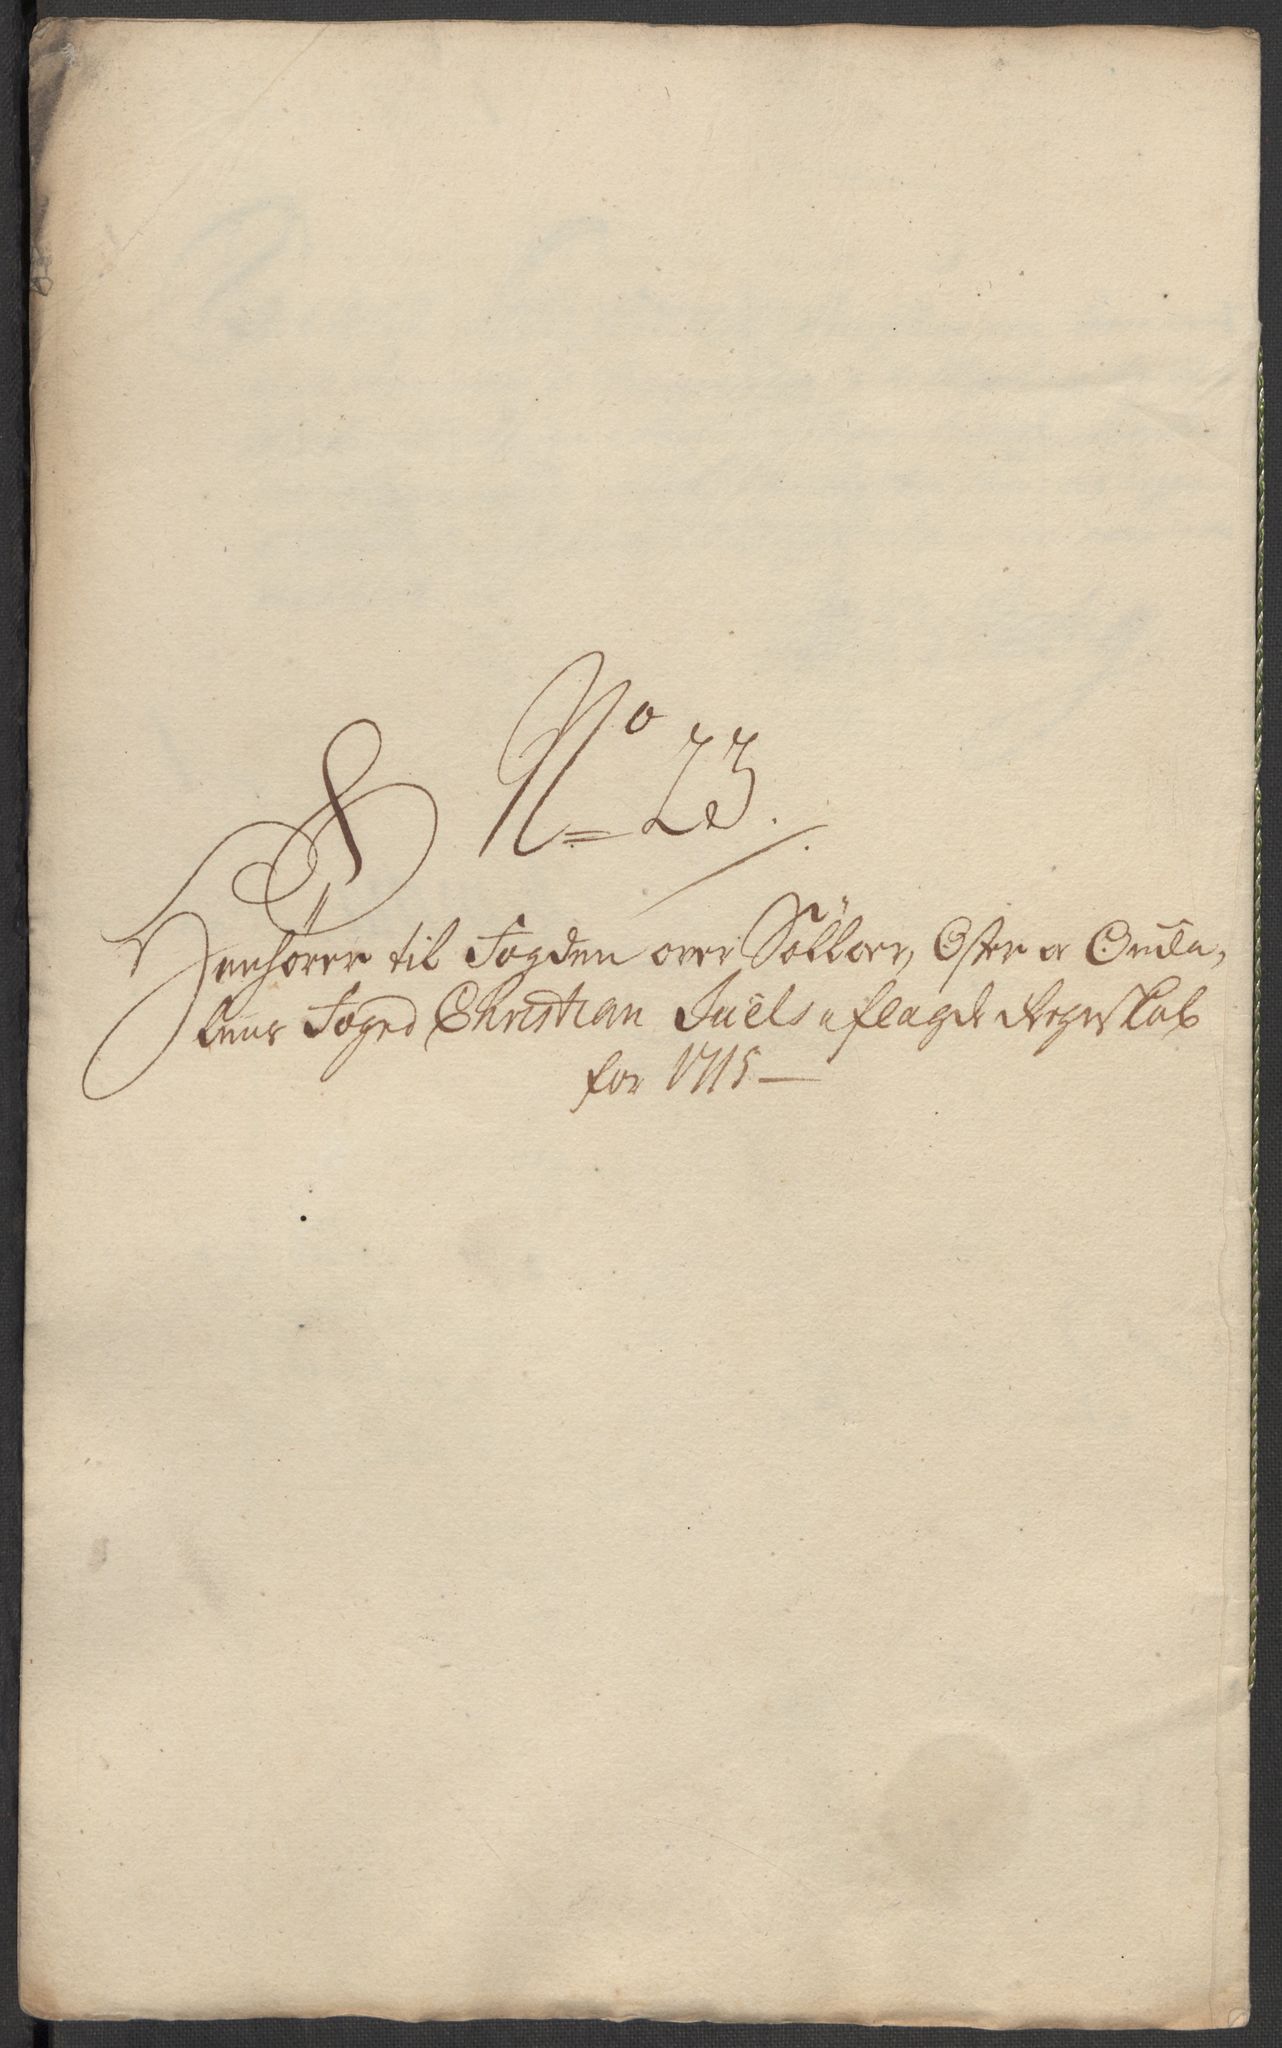 No 23.
Henhører til Fogden over Sölloer, Øster og Ørda,
lens Foged Christian Juels aflagde Regnskab
for 1715